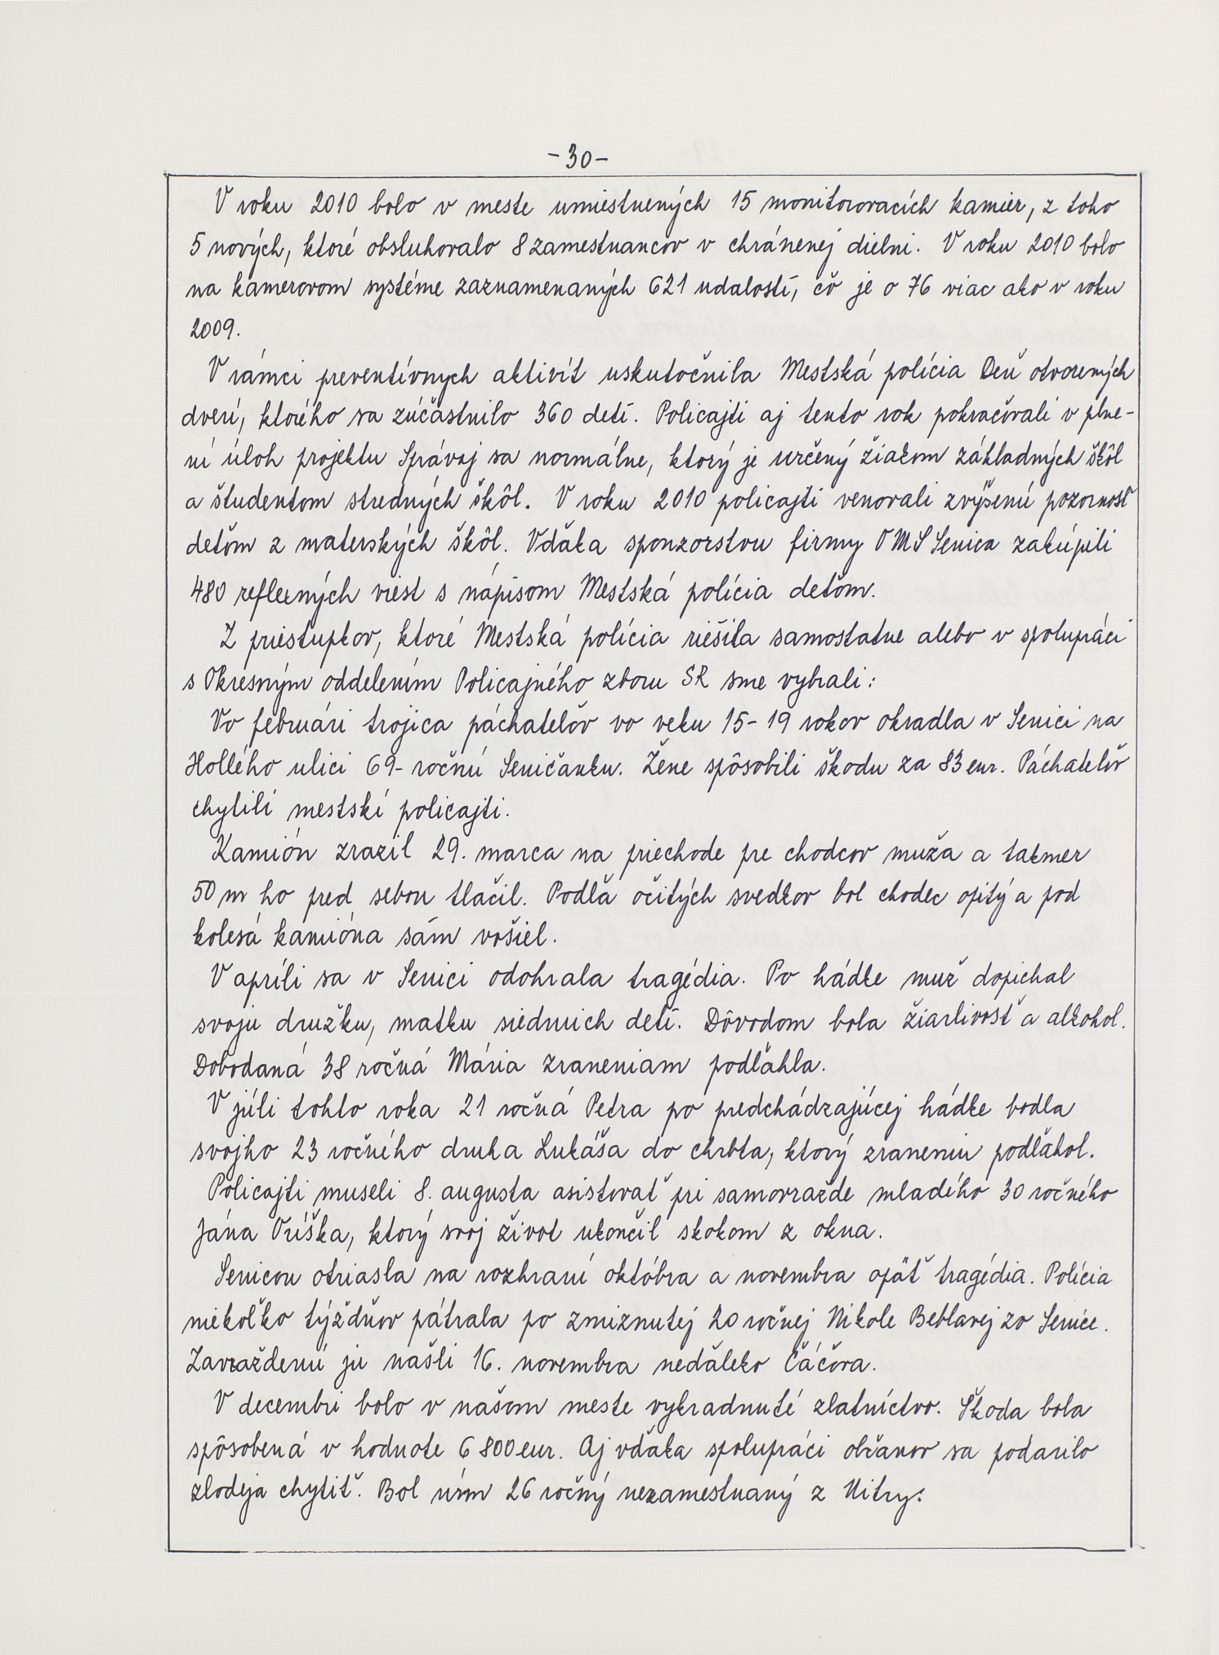 -30-
V roku 2010 bolo v meste umiestnených 15 monitorovacích kamier, z toho
5 nových, ktoré obsluhovalo 8 zamestnancov v chránenej dielni. V roku 2010 bolo
na kamerovom systéme zaznamenaných 621 udalostí, čo je o 76 viac ako v roku
2009.
V rámci preventívnych aktivít uskutočnila Mestská polícia Deň otvorených
dverí, ktorého sa zúčastnilo 360 detí. Policajti aj tento rok pokračovali v plne-
ní úloh projektu Správaj sa normálne, ktorý je určený žiakom základných škôl
a študentom stredných škôl. V roku 2010 policajti venovali zvýšenú pozornosť
deťom z materských škôl. Vďaka sponzorstvu firmy OMS Senica zakúpili
480 reflexných viest s nápisom Mestská polícia deťom.
Z priestupkov, ktoré Mestská polícia riešila samostatne alebo v spolupráci
s Okresným oddelením Policajného zboru SR sme vybrali:
Vo februári trojica páchateľov vo veku 15-19 rokov okradla v Senici na
Hollého ulici 69-ročnú Seničanku. Žene spôsobili škodu za 83 eur. Páchateľov
chytili mestskí policajti.
Kamión zrazil 29. marca na priechode pre chodcov muža a takmer
50 m ho pred sebou tlačil. Podľa očitých svedkov bol chodec opitý a pod
kolesá kamióna sám vošiel.
V apríli sa v Senici odohrala tragédia. Po hádke muž dopichal
svoju družku, matku siedmich detí. Dôvodom bola žiarlivosť a alkohol.
Dobodaná 38 ročná Mária zraneniam podľahla.
V júli tohto roka 21 ročná Petra po predchádzajúcej hádke bodla
svojho 23 ročného druha Lukáša do chrbta, ktorý zraneniu podľahol.
Policajti museli 8. augusta asistovať pri samovražde mladého 30 ročného
Jána Oríška, ktorý svoj život ukončil skokom z okna.
Senicou otriasla na rozhraní októbra a novembra opäť tragédia. Polícia
niekoľko týždňov pátrala po zmiznutej 20 ročnej Nikole Beblavej zo Senice.
Zavraždenú ju našli 16. novembra neďaleko Čáčova.
V decembri bolo v našom meste vykradnuté zlatníctvo. Škoda bola
spôsobená v hodnote 6 800 eur. Aj vďaka spolupráci občanov sa podarilo
zlodeja chytiť. Bol ním 26 ročný nezamestnaný z Nitry.